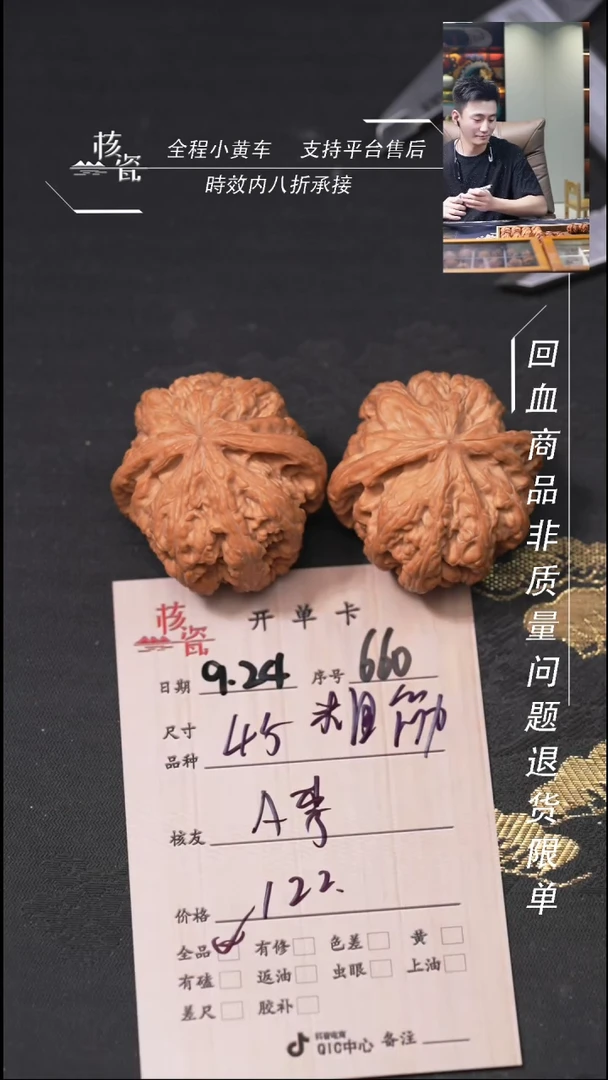 核瓷
全程小黄车 支持平台售后
時效内八折承接
回血商品非质量问题退货限单
核瓷
开单卡
日期 9.24 序号 660
尺寸 45 粗筋
品种
核友 A哥
价格 122.
全品 有修 色差 黄
有磕 返油 虫眼 上油
差尺 胶补
抖音电商
QIC中心 备注